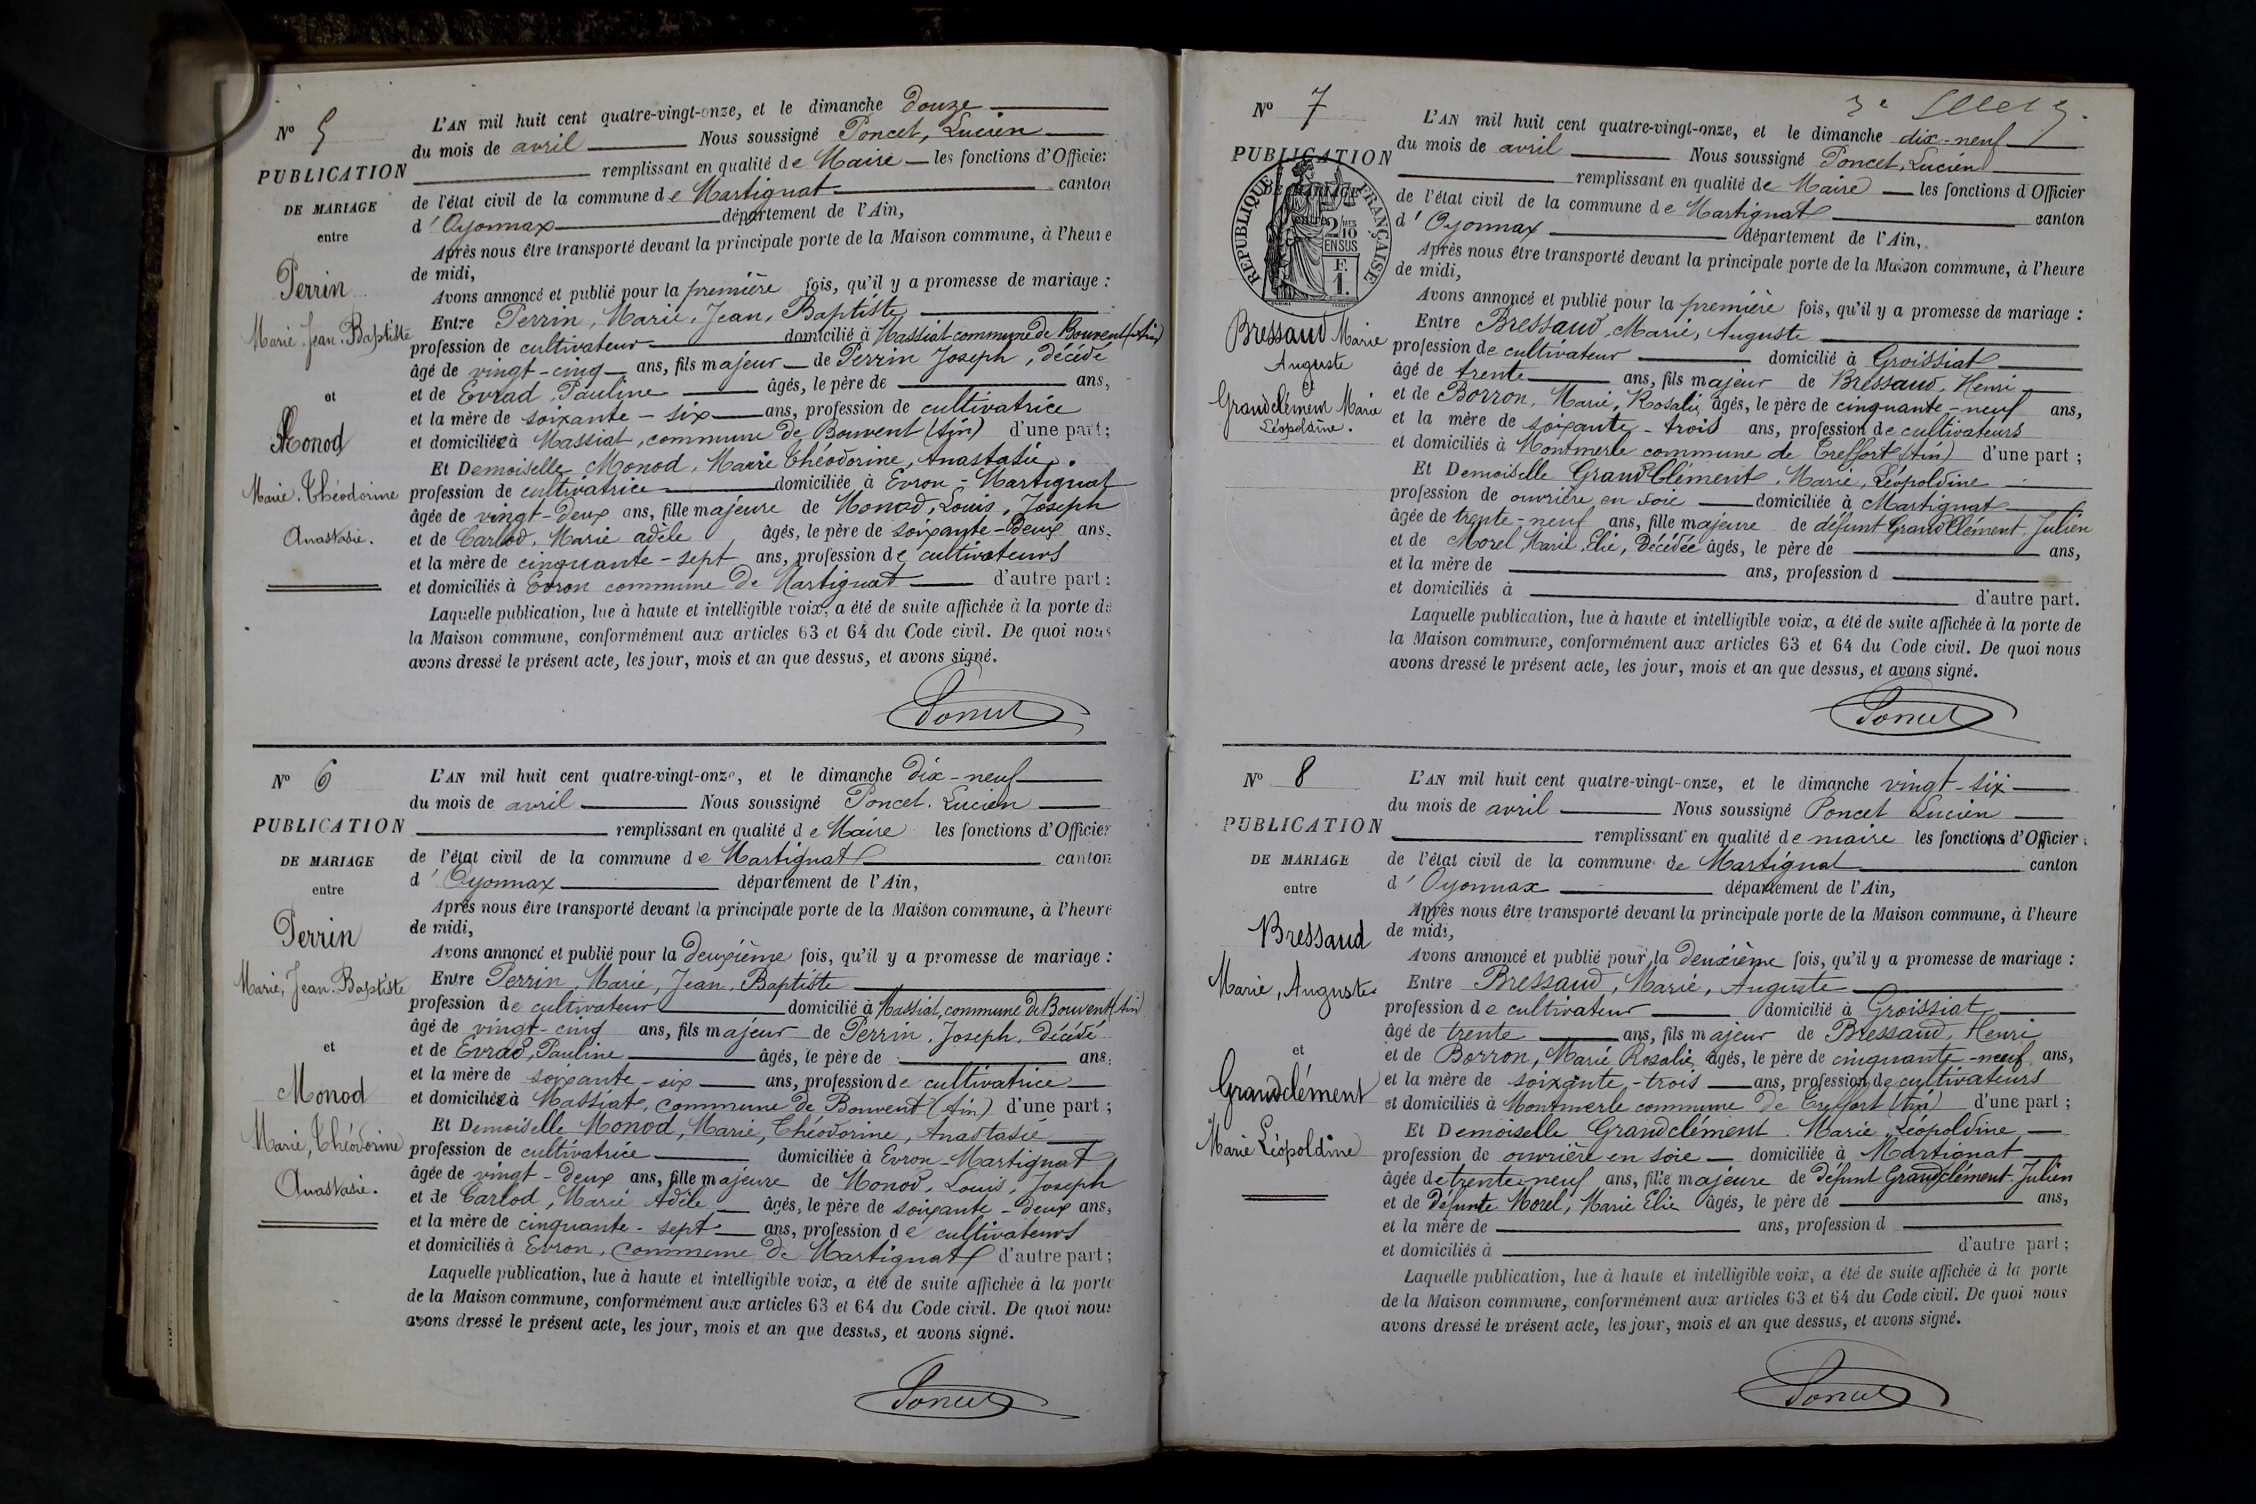 N° 5
PUBLICATION
DE MARIAGE
entre
Perrin
Marie. Jean. Baptiste
et
Monod
Marie. Théodorine
Anastasie.
L'AN mil huit cent quatre-vingt-onze, et le dimanche douze
du mois de avril Nous soussigné Poncet, Lucien
remplissant en qualité de Maire les fonctions d'Officier
de l'état civil de la commune de Martignat canton
d'Oyonnax département de l'Ain,
Après nous être transporté devant la principale porte de la Maison commune, à l'heure
de midi,
Avons annoncé et publié pour la première fois, qu'il y a promesse de mariage :
Entre Perrin, Marie, Jean, Baptiste
profession de cultivateur domicilié à Massiat commune de Bouvent (Ain)
âgé de vingt-cinq ans, fils majeur de Perrin Joseph, décédé
et de Evrad, Pauline âgés, le père de ans,
et la mère de soixante-six ans, profession de cultivatrice
et domiciliée à Massiat, commune de Bouvent (Ain) d'une part ;
Et Demoiselle Monod, Marie Théodorine, Anastasie.
profession de cultivatrice domiciliée à Evron-Martignat
âgée de vingt-deux ans, fille majeure de Monod, Louis, Joseph
et de Carlod, Marie adèle âgés, le père de soixante-deux ans,
et la mère de cinquante-sept ans, profession de cultivateurs
et domiciliés à Evron commune de Martignat d'autre part :
Laquelle publication, lue à haute et intelligible voix, a été de suite affichée à la porte de
la Maison commune, conformément aux articles 63 et 64 du Code civil. De quoi nous
avons dressé le présent acte, les jour, mois et an que dessus, et avons signé.
Poncet
N° 6
PUBLICATION
DE MARIAGE
entre
Perrin
Marie, Jean. Baptiste
et
Monod
Marie, Théodorine
Anastasie.
L'AN mil huit cent quatre-vingt-onze, et le dimanche dix-neuf
du mois de avril Nous soussigné Poncet. Lucien
remplissant en qualité de Maire les fonctions d'Officier
de l'état civil de la commune de Martignat canton
d'Oyonnax département de l'Ain,
Après nous être transporté devant la principale porte de la Maison commune, à l'heure
de midi,
Avons annoncé et publié pour la deuxième fois, qu'il y a promesse de mariage :
Entre Perrin, Marie, Jean, Baptiste
profession de cultivateur domicilié à Massiat, commune de Bouvent (Ain)
âgé de vingt-cinq ans, fils majeur de Perrin, Joseph, décédé
et de Evrad, Pauline âgés, le père de ans,
et la mère de soixante-six ans, profession de cultivatrice
et domiciliée à Massiat, commune de Bouvent (Ain) d'une part ;
Et Demoiselle Monod, Marie, Théodorine, Anastasie
profession de cultivatrice domiciliée à Evron-Martignat
âgée de vingt-deux ans, fille majeure de Monod, Louis, Joseph
et de Carlod, Marie Adèle âgés, le père de soixante-deux ans,
et la mère de cinquante-sept ans, profession de cultivateurs
et domiciliés à Evron, commune de Martignat d'autre part ;
Laquelle publication, lue à haute et intelligible voix, a été de suite affichée à la porte
de la Maison commune, conformément aux articles 63 et 64 du Code civil. De quoi nous
avons dressé le présent acte, les jour, mois et an que dessus, et avons signé.
Poncet
3e
N° 7
PUBLICATION
DE MARIAGE
entre
RÉPUBLIQUE FRANÇAISE
2/10 MES
EN SUS
F.
1.
Bressaud Marie
Auguste
Grandclément Marie
Léopoldine.
L'AN mil huit cent quatre-vingt-onze, et le dimanche dix-neuf
du mois de avril Nous soussigné Poncet, Lucien
remplissant en qualité de Maire les fonctions d'Officier
de l'état civil de la commune de Martignat canton
d'Oyonnax département de l'Ain,
Après nous être transporté devant la principale porte de la Maison commune, à l'heure
de midi,
Avons annoncé et publié pour la première fois, qu'il y a promesse de mariage :
Entre Bressaud, Marie, Auguste
profession de cultivateur domicilié à Groissiat
âgé de trente ans, fils majeur de Bressaud, Henri
et de Borron, Marie, Rosalie, âgés, le père de cinquante-neuf ans,
et la mère de soixante-trois ans, profession de cultivateurs
et domiciliés à Montmerle commune de Treffort (Ain) d'une part ;
Et Demoiselle GrandClément, Marie, Léopoldine
profession de ouvrière en soie domiciliée à Martignat
âgée de trente-neuf ans, fille majeure de défunt GrandClément, Julien
et de Morel, Marie, Elie, Décédée âgés, le père de ans,
et la mère de ans, profession d
et domiciliés à d'autre part.
Laquelle publication, lue à haute et intelligible voix, a été de suite affichée à la porte de
la Maison commune, conformément aux articles 63 et 64 du Code civil. De quoi nous
avons dressé le présent acte, les jour, mois et an que dessus, et avons signé.
Poncet
N° 8
PUBLICATION
DE MARIAGE
entre
Bressaud
Marie, Auguste
et
Grandclément
Marie Léopoldine
L'AN mil huit cent quatre-vingt-onze, et le dimanche vingt-six
du mois de avril Nous soussigné Poncet Lucien
remplissant en qualité de maire les fonctions d'Officier
de l'état civil de la commune de Martignat canton
d'Oyonnax département de l'Ain,
Après nous être transporté devant la principale porte de la Maison commune, à l'heure
de midi,
Avons annoncé et publié pour la deuxième fois, qu'il y a promesse de mariage :
Entre Bressaud, Marie, Auguste
profession de cultivateur domicilié à Groissiat
âgé de trente ans, fils majeur de Bressaud, Henri
et de Borron, Marie Rosalie, âgés, le père de cinquante-neuf ans,
et la mère de soixante-trois ans, profession de cultivateurs
et domiciliés à Montmerle commune de Treffort (Ain) d'une part ;
Et Demoiselle Grandclément. Marie, Léopoldine
profession de ouvrière en soie domiciliée à Martignat
âgée de trente-neuf ans, fille majeure de défunt Grandclément Julien
et de défunte Morel, Marie Elie âgés, le père de ans,
et la mère de ans, profession d
et domiciliés à d'autre part ;
Laquelle publication, lue à haute et intelligible voix, a été de suite affichée à la porte
de la Maison commune, conformément aux articles 63 et 64 du Code civil. De quoi nous
avons dressé le présent acte, les jour, mois et an que dessus, et avons signé.
Poncet